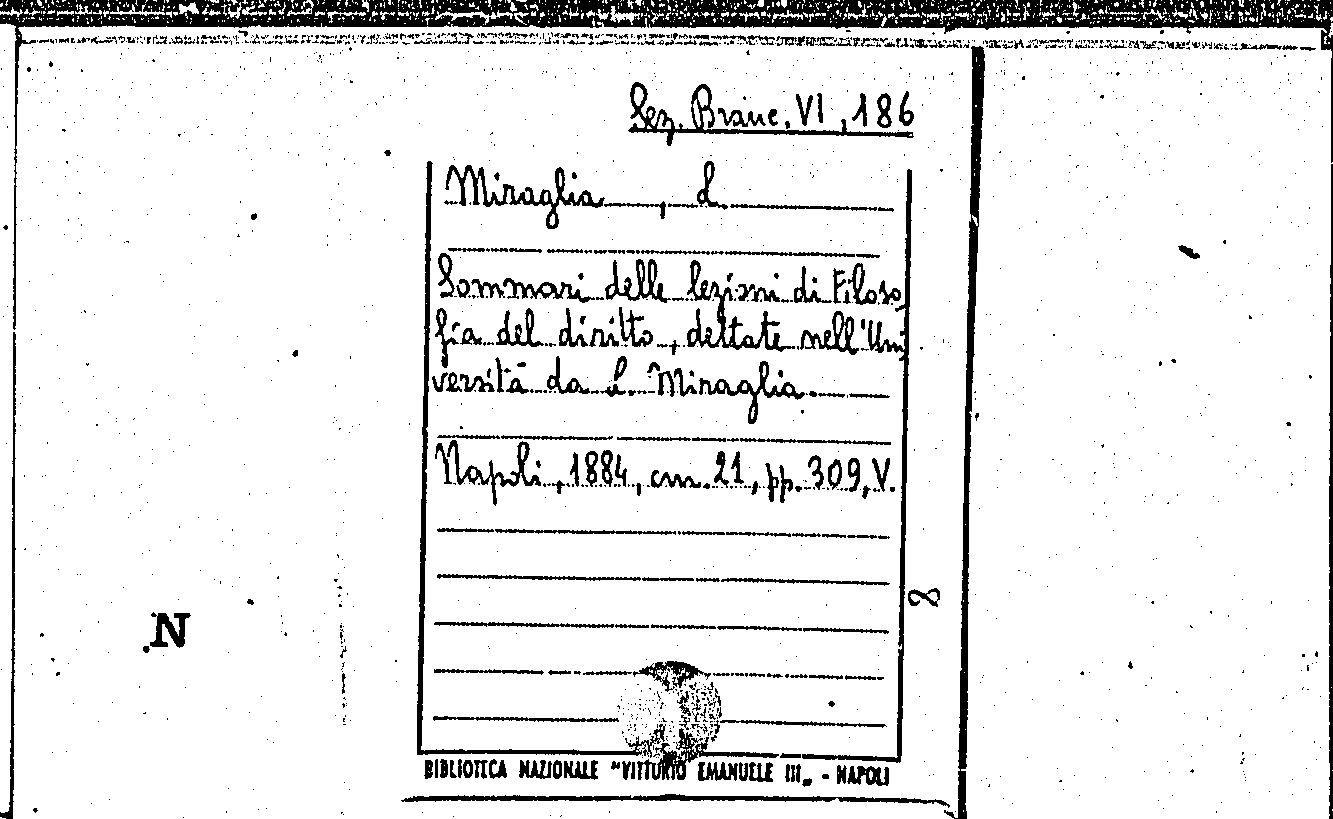 Sez. Branc. VI, 186
Miraglia, L.
Sommari delle lezioni di Filoso
fia del diritto, dettate nell'Uni
versità da L. Miraglia.
Napoli, 1884, cm. 21, pp. 309, V.
8
N
BIBLIOTECA NAZIONALE "VITTORIO EMANUELE III„ - NAPOLI